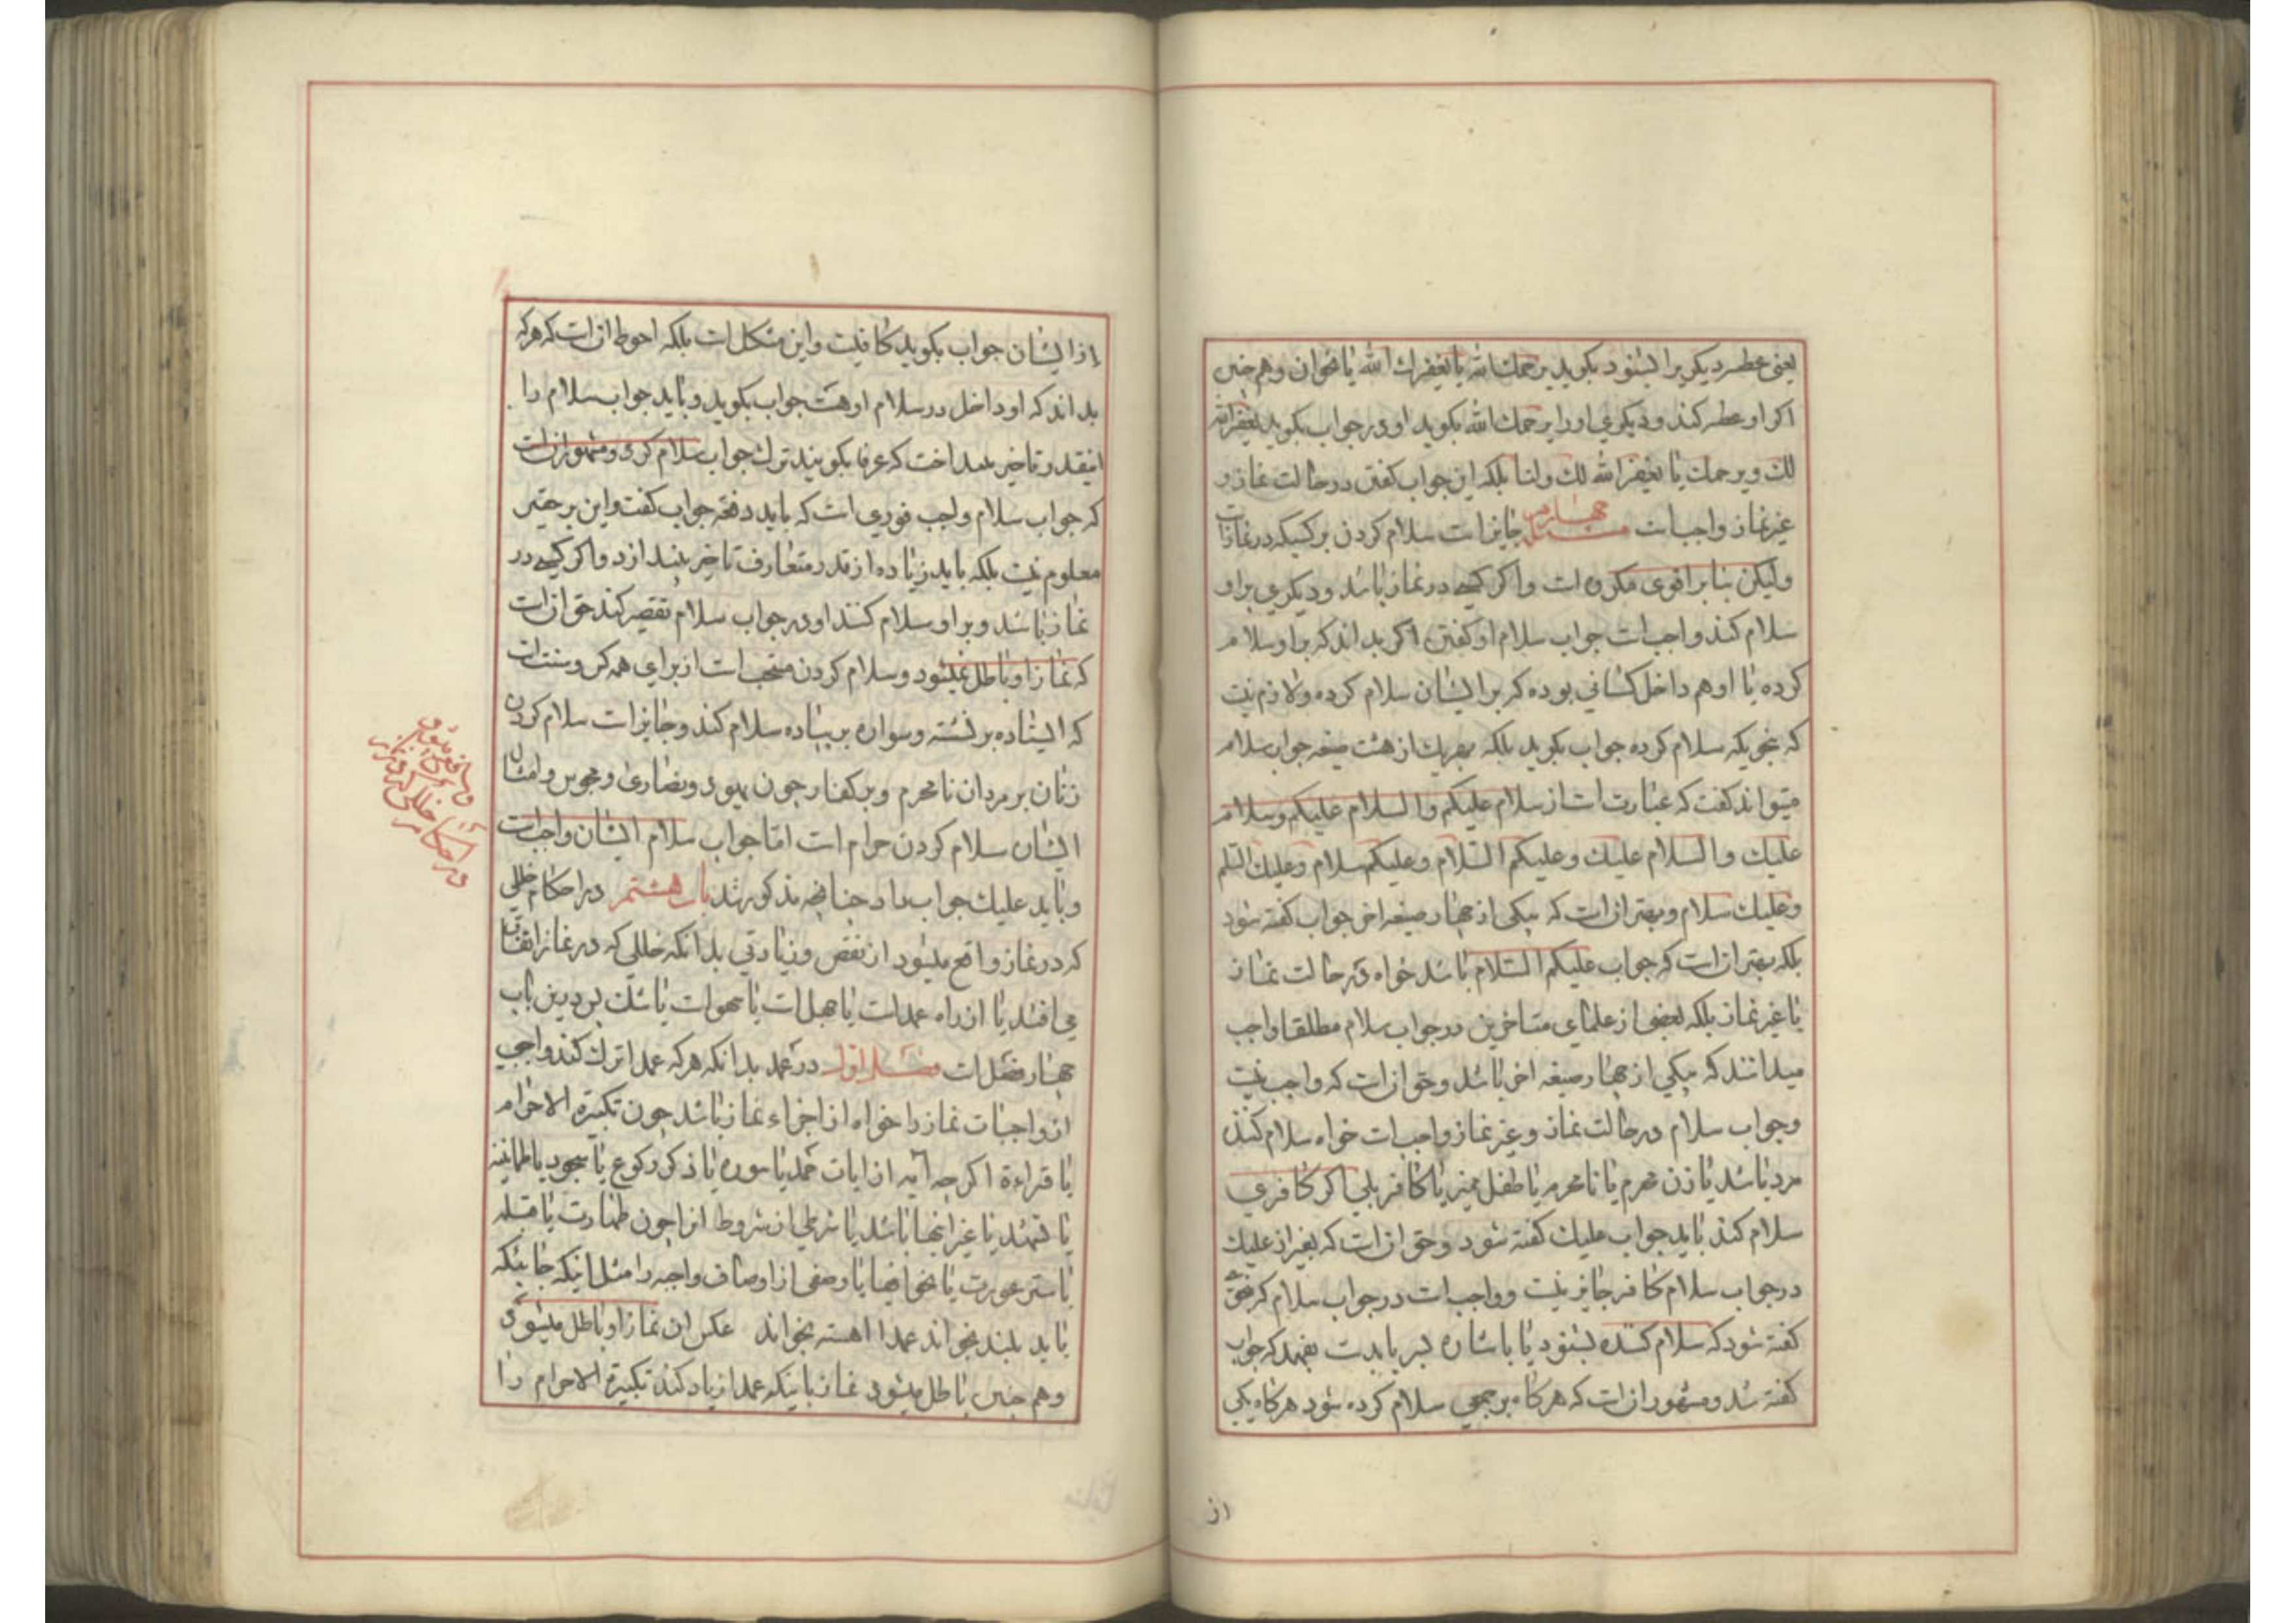 یعنی عطسه دیگری را بشنود بگوید یرحمک الله یا یغفرلک الله یا نحوان و هم چنین
اکر او عطسه کند و دیکری او را یرحمک الله بکوید او در جواب بکوید یغفرالله
لک و یرحمک یا یغفرالله لک ولنا بلکه این جواب کفتن در حالت نماز و
غیر نماز واجب است چهارم جایز است سلام کردن بر کسیکه در نماز است
ولیکن بنا بر اقوی مکروه است و اکر کسی در نماز باشد و دیکری بر او
سلام کند واجب است جواب سلام او کفتن اکر بداند که بر او سلام
کرده یا او هم داخل کسانی بوده که بر ایشان سلام کرده و لازم نیست
که بنحویکه سلام کرده جواب بکوید بلکه بهر یک از هشت صیغه جواب سلام
میتواند کفت که عبارت است از سلام علیکم و السلام علیکم و سلام
علیک و السلام علیک و علیکم السلام و علیکم سلام و علیک السلم
و علیک سلام و بهتر ان است که بیکی از چهار صیغه اخر جواب کفته شود
بلکه بهتر ان است که جواب علیکم السلام باشد خواه در حالت نماز
یا غیر نماز بلکه بعضی از علمای متاخرین در جواب سلام مطلقا واجب
میدانند که بیکی از چهار صیغه اخر باشد و حق ان است که واجب نیست
و جواب سلام در حالت نماز و غیر نماز واجب است خواه سلام کننده
مرد باشد یا زن محرم یا نامحرم یا طفل ممیز یا کافر بلی اکر کافری
سلام کند باید جواب علیک کفته شود و حق ان است که بغیر از علیک
در جواب سلام کافر جایز نیست و واجب است در جواب سلام که بنحوی
کفته شود که سلام کننده بشنود یا باشاره سر یا بدست بفهمد که جواب
کفته شد و مشهور ان است که هرکاه بر جمعی سلام کرده شود هرکاه یکی
از
از ایشان جواب بکوید کافیست و این مشکل است بلکه احوط ان است که هرکه
بداند که او داخل در سلام او هست جواب بکوید و باید جواب سلام را
انقدر تاخیر نینداخت که عرفا بکویند ترک جواب سلام کرد و مشهور ان است
که جواب سلام واجب فوری است که باید دفعة جواب کفت و این بر حقیر
معلوم نیست بلکه باید زیاده از قدر متعارف تاخیر نیندازد و اکر کسی در
نماز باشد و بر او سلام کنند او در جواب سلام تقصیر کند حق ان است
که نماز او باطل نمیشود و سلام کردن مستحب است از برای همه کس و سنت است
که ایستاده بر نشسته و سواره بر پیاده سلام کند و جایز است سلام کردن
زنان بر مردان نامحرم و بر کفار چون یهود و نصاری و مجوس و امثال
ایشان سلام کردن حرام است اما جواب سلام ایشان واجب است
و باید علیک جواب داد چنانچه مذکور شد باب هشتم در احکام خللی
که در نماز واقع میشود از نقص و زیادتی بدانکه خللی که در نماز اتفاق
می افتد یا از راه عمد است یا جهل است یا سهو است یا شک پس در این باب
چهار فصل است فصل اول در عمد بدانکه هرکه عمدا ترک کند واجبی
از واجبات نماز را خواه از اجزاء نماز باشد چون تکبیرة الاحرام
یا قراءة اکرچه آیه از ایات حمد یا سوره یا ذکر رکوع یا سجود یا طمانینه
یا تشهد یا غیر اینها باشد یا شرطی از شروط انرا چون طهارت یا قبله
یا ستر عورت یا نحو اینها یا وصفی از اوصاف واجبه را مثل اینکه جائیکه
باید بلند بخواند عمدا اهسته بخواند عکس ان نماز او باطل میشود
و هم چنین باطل میشود نماز باینکه عمدا زیاد کند تکبیرة الاحرام را